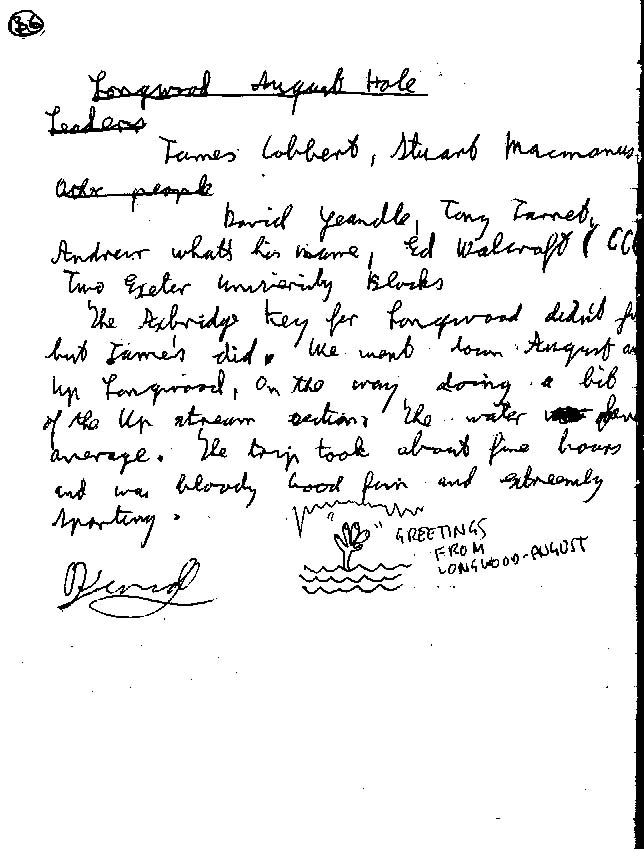 36
Longwood August Hole
Leaders
James Cobbert, Stuart Macmanus,
Other people
David Yeandle, Tony Jarret,
Andrew whats his name, Ed Walcraft (CC
Two Exeter University Blocks
The Axbridge Key for Longwood didn't
but Jame's did. We went down August
Up Longwood, On the way doing a bit
of the Up stream section, The water
average. The trip took about five hours
and was bloody Good fun and extreemly
sporting.
GREETINGS
FROM
LONGWOOD-AUGUST